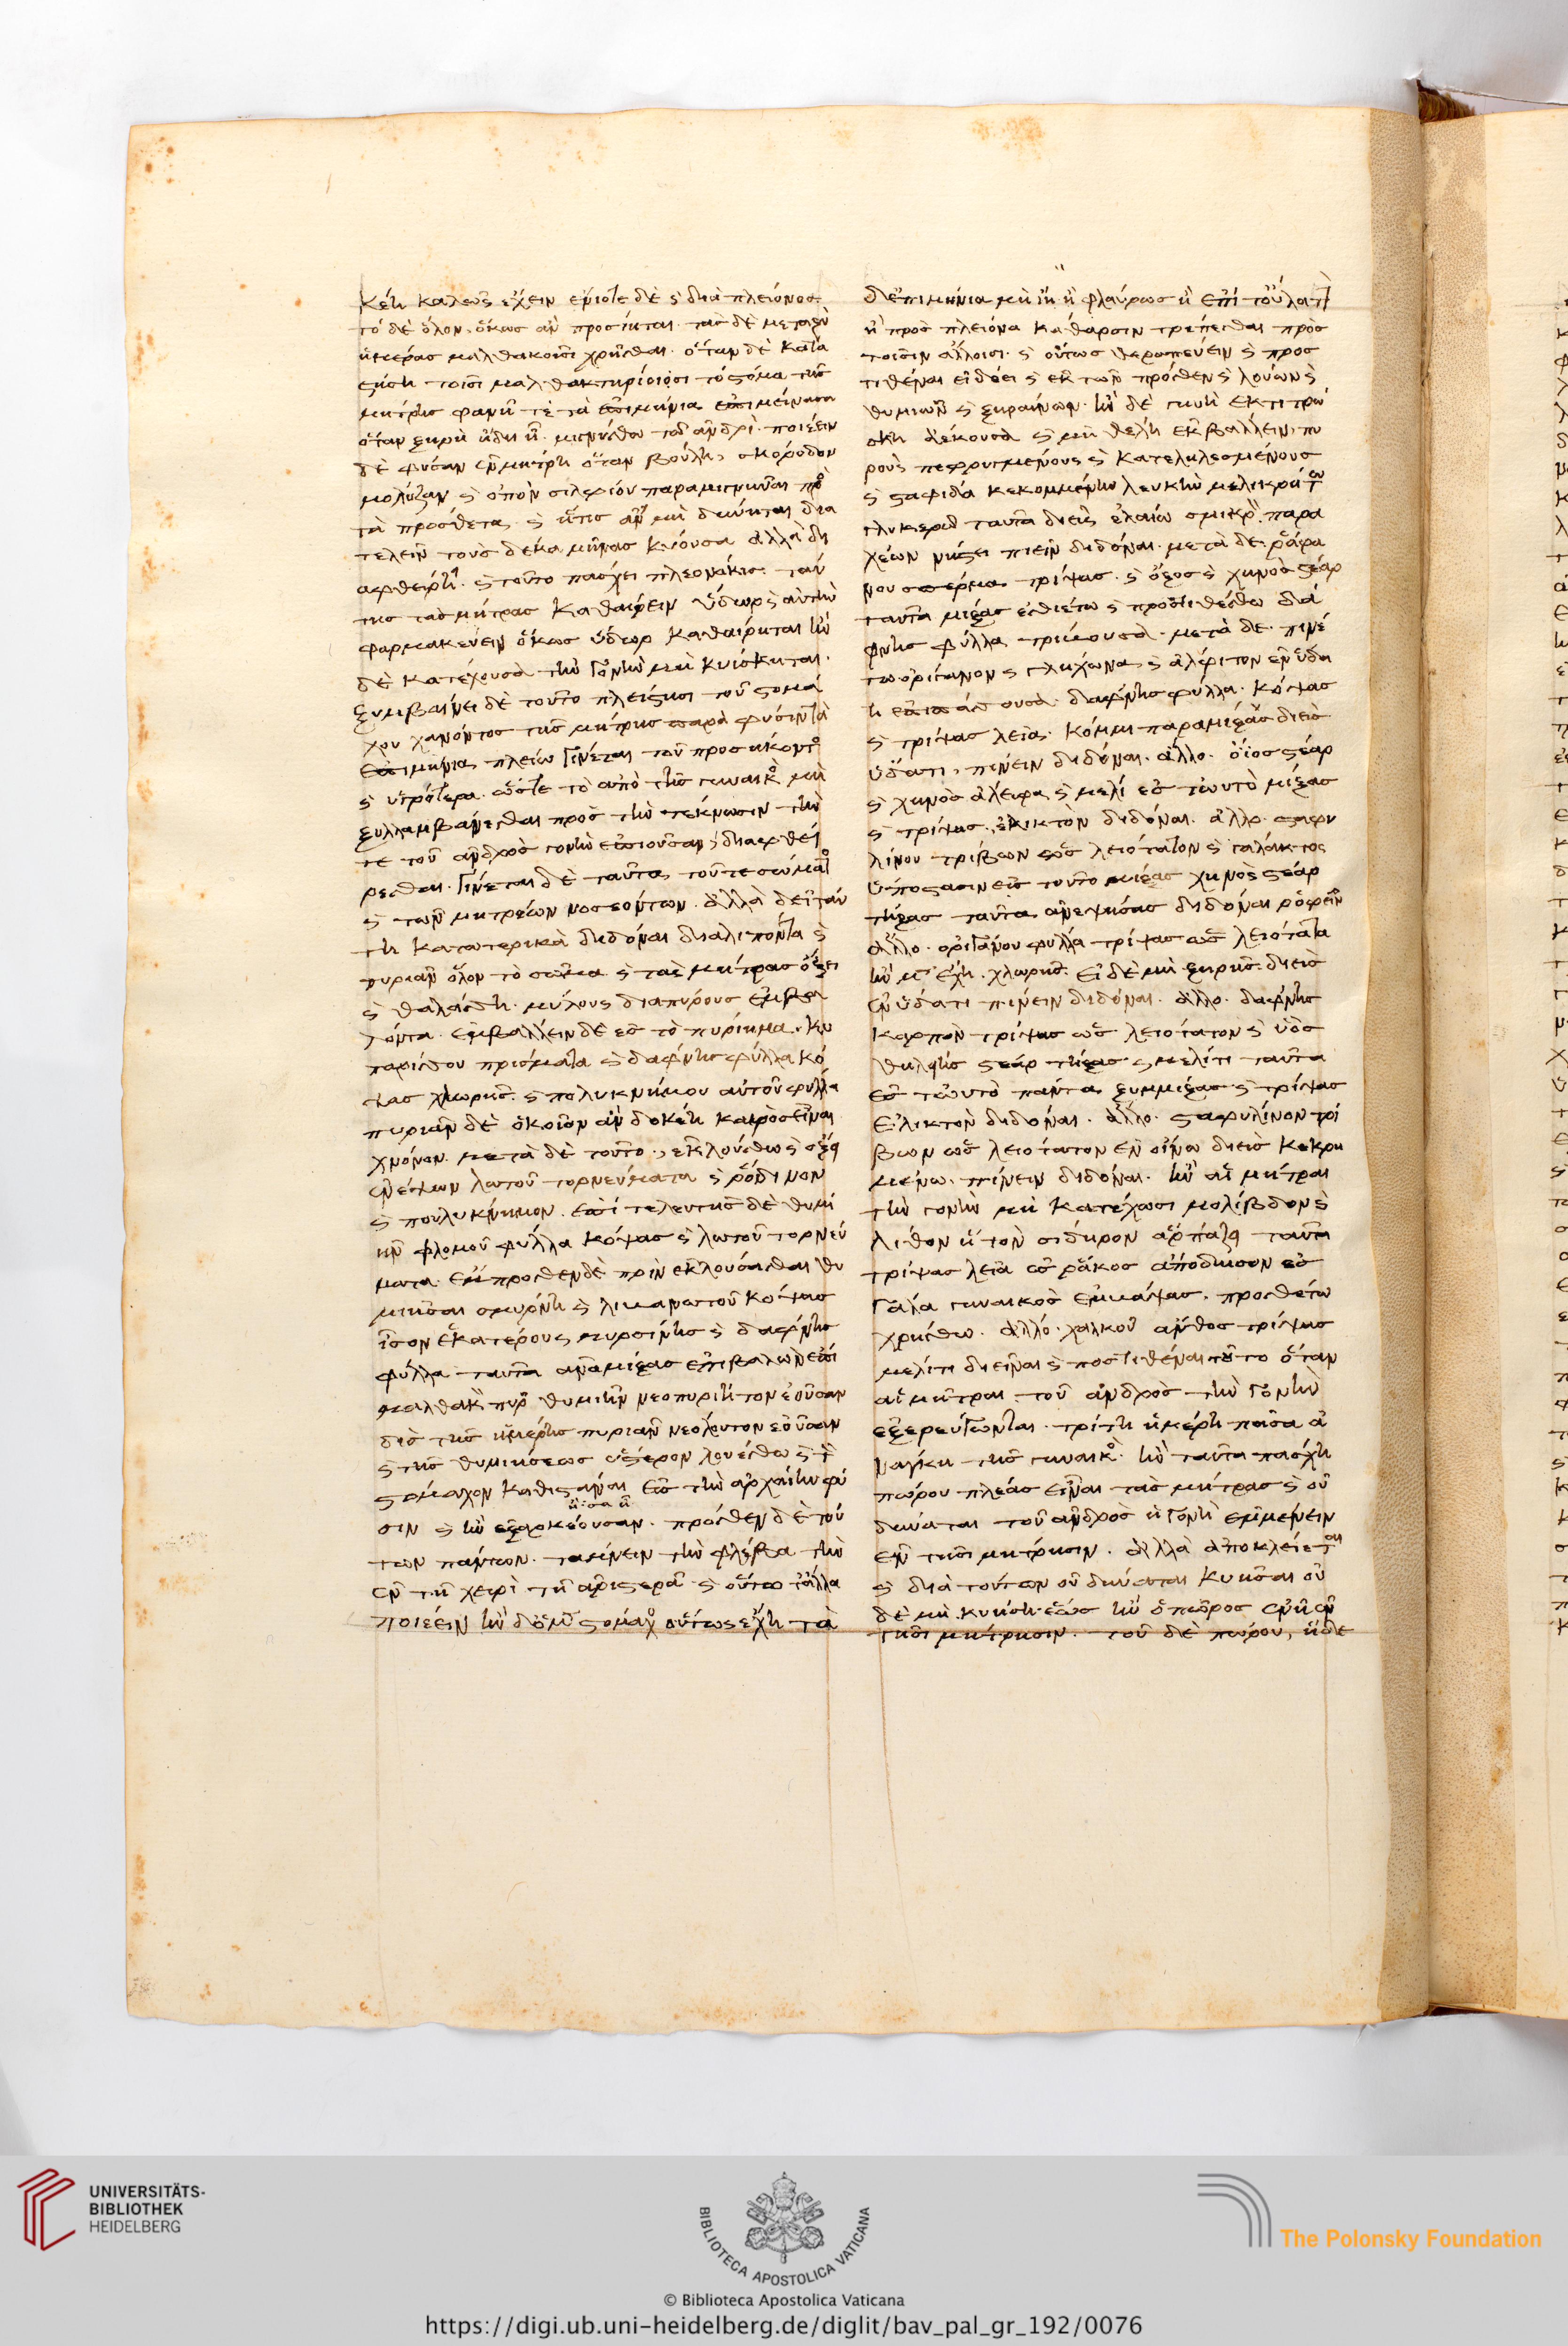 κέῃ καλῶς ἔχειν ἐνίοτε δὲ ϗ διὰ πλείονος
τὸ δὲ ὅλον, ὅκως ἂν προσίηται· τὰς δὲ μεταξὺ
ἡμέρας μαλθακοῖσι χρῆσθαι· ὅταν δὲ κατα
τοῖσι μαλθακτηρίοισι τὸ στόμα τῆς
μήτρης φανῇ τὲ τὰ ἐπιμήνια ἐπιμείνασα
ὅταν ξηρὴ ἤδη ᾖ· μιγνύσθω τῷ ἀνδρὶ· ποιέειν
δὲ φύσαν ἐν μήτρῃ ὅταν βούλῃ, σκόροδον
μολύζαν ϗ ὀπὸν σιλφίου παραμιγνῦναι πρὸ
τὰ πρόσθετα· ϗ ἥτις ἂν μὴ δύνηται δια
τελεῖν τοὺς δέκα μῆνας κυόυσα ἀλλὰ δι
αφθείρῃ· ϗ τοῦτο πάσχει πλεονάκις· ταύ
της τὰς μήτρας καθαίρειν ὕδωρ ϗ αὐτὴν
φαρμακεύειν ὅκως ὕδωρ καθαίρηται ἢν
δὲ κατέχουσα τὴν γονὴν μὴ κυΐσκηται·
ξυμβαίνει δὲ τοῦτο πλείστῃσι τοῦ στομά
χου χανόντος τῆς μήτρης παρὰ φύσιν τὰ
ἐπιμήνια πλείω γίνεται τοῦ προσήκοντο
ϗ ὑγρότερα· ὥστε τὸ ἀπὸ τῆς γυναικὸ μὴ
ξυλλαμβάνεσθαι πρὸς τὴν τέκνωσιν τὴν
τε τοῦ ἀνδρὸς γονὴν ἐπιοῦσαν, διαφθεί
ρεσθαι· γίνεται δὲ ταῦτα, τοῦ τε σώματο
ϗ τῶν μητρέων νοσεόντων· ἀλλὰ δεῖ ταύ
τῃ κατωτερικὰ διδόναι διαλιπόντα ϗ
πυριᾶν ὅλον τὸ σῶμα ϗ τὰς μήτρας ὄξει
ϗ θαλάσσῃ· μύλους διαπύρους ἐμβα
λόντα· ἐμβάλλειν δὲ ἐς τὸ πυρίημα· κυ
παρίσσου πρίσματα ϗ δάφνης φύλλα κό
ψας χλωρῆς· ϗ πολυκνήμου αὐτοῦ φύλλα
πυριᾶν δὲ ὁκοῖον ἂν δοκέῃ καιρὸς εἶναι
χρόνον· μετὰ δὲ τοῦτο, ἐκλούσθω ϗ ὄξει
ἐνέψων λωτοῦ τορνεύματα ϗ ῥόδινον
ϗ πουλυκνήμον· ἐπὶ τελευτῆς δὲ θυμι
ῆν φλομοῦ φύλλα κόψας ϗ λωτοῦ τορνεύ
ματα· ἔμπροσθεν δὲ πρὶν ἐκλούσασθαι θυ
μιῆσαι σμύρνῃ ϗ λιβανωτοῦ κόψας
ἴσον ἑκατέρους μυρσίνης ϗ δάφνης
φύλλα ταῦτα ἀναμίξας ἐπιβαλὼν ἐπὶ
μαλθακ πῦρ θυμιῆν νεοπυρίητον ἐοῦσαν
δὶς τῆς ἡμέρης πυριᾶν νεόλουτον ἐοῦσαν
ϗ τῆς θυμιήσεως ὕστερον λουέσθω ϗ τ
στόμαχον καθιστάναι ἐς τὴν ἀρχαίην φύ
σιν ϗ ἢν ἐξαρκέουσαν· πρόσθεν δὲ τού
των πάντων· ταμνειν τὴν φλέβα τὴν
ἐν τῇ χειρὶ τῇ ἀριστερᾷ ϗ οὕτω τἄλλα
ποιέειν ἢν δὲ μὴ στόμαχο οὕτως ἔχῃ τὰ
δὲ ἐπιμήνια μὴ ἴῃ ἢ φλαύρως ἢ ἐπὶ τοὔλατ
ἢ πρὸς πλείονα κάθαρσιν τρέπεσθαι πρὸς
τοῖσιν ἄλλοισι· ϗ οὕτως θεραπεύειν ϗ προσ
τιθέναι εἰ δέει ϗ ἐκ τῶν πρόσθεν ϗ λούων ϗ
θυμιῶν ϗ ξηραίνων· ἢν δὲ γυνὴ ἐκτιτρώ
σκῃ ἀέκουσα ϗ μὴ θέλῃ ἐκβάλλειν, πυ
ροὺς πεφρυγμένους ϗ κατεληλεσμένους
ϗ σταφίδα κεκομμένην λευκὴν μελικρήτων
γλυκερῶ ταῦτα διεὶς ἐλαίω σμικρὸ παρα
χέων νῆστει πιεῖν διδόναι· μετὰ δὲ ῥάφα
νου σπέρμα τρίψας· ϗ ὄξος ϗ χηνὸς στέαρ
ταῦτα μίξας ἐσθιέτω ϗ προστιθέσθω δα
φνης φύλλα τρίψουσα· μετὰ δὲ πινέ
τω ὀρίγανον ϗ γλήχωνα ϗ ἄλφιτον ἐν ὕδα
τι ἐπιπάσσουσα· δάφνης φύλλα· κόψας
ϗ τρίψας λεῖα· κόμμι παραμίξας διεὶς
ὕδατι, πίνειν διδόναι· ἄλλο· ὄϊος στέαρ
ϗ χηνὸς ἄλειφα ϗ μέλι ἐς τὠυτὸ μίξας
ϗ τρίψας, ἐκλικτὸν διδόναι· ἄλλο· σταφυ
λίνου τρίβων ὡς λειότατον ϗ γάλακτος
ὑπόστασιν εἰς τοῦτο μίξας χηνὸς στέαρ
τήξας ταῦτα ἀνεψήσας διδόναι ῥοφεῖν
ἄλλο· ὀριγάνου φύλλα τρίψας ὡς λειότατα
ἢν μ ἔχῃ· χλωρῆς· εἰ δὲ μὴ ξηρῆς· διεὶς
ἐν ὕδατι πίνειν διδόναι· ἄλλο· δάφνης
καρπὸν τρίψας ὡς λειότατον ϗ ὑὸς
θηλείης στέαρ τήξας ϗ μέλιτι ταῦτα
ἐς τὠυτὸ πάντα ξυμμίξας ϗ τρίψας
ἐλικτὸν διδόναι· ἄλλο· σταφυλίνον τρί
βων ὡς λειότατον ἐν οἴνω διεὶς κεκρη
μένω· πίνειν διδόναι· ἢν αἱ μήτραι
τὴν γονὴν μὴ κατέχωσι μόλιβδον ϗ
λίθον ἥ τὸν σίδηρον ἁρπάζει ταῦτα
τρίψας λεῖα ἐς ῥάκος ἀπόδησον ἐς
γάλα γυναικὸς ἐμβάψας, προσθέτω
χρήσθω· ἄλλο· χαλκοῦ ἄνθος τρίψας
μέλιτι διεῖναι ϗ ποστιθέναι τοῦτο ὅταν
αἱ μῆτραι τοῦ ἀνδρὸς τὴν γονὴν
ἐξερεύγωνται· τρίτῃ ἡμέρῃ πᾶσα ἀ
νάγκη τῆς γυναικὸ· ἢν ταῦτα πάσχῃ
πώρου πλέας εἶναι τὰς μήτρας ϗ οὐ
δύναται τοῦ ἀνδρὸς ἡ γονὴ ἐμμένειν
ἐν τῇσι μήτρῃσιν· ἀλλὰ ἀποκλείεται
ϗ διὰ τούτων οὐ δύναται κυῆσαι οὐ
δὲ μὴ κυήσῃ· ἕως ἢν ὁ πῶρος ἐνῇ ἐν
τῇσι μήτρῃσιν· τοῦ δὲ πώρου, ἥδε
UNIVERSITÄTS-
BIBLIOTHEK
HEIDELBERG
BIBLIOTECA APOSTOLICA VATICANA
The Polonsky Foundation
© Biblioteca Apostolica Vaticana
https://digi.ub.uni-heidelberg.de/diglit/bav_pal_gr_192/0076